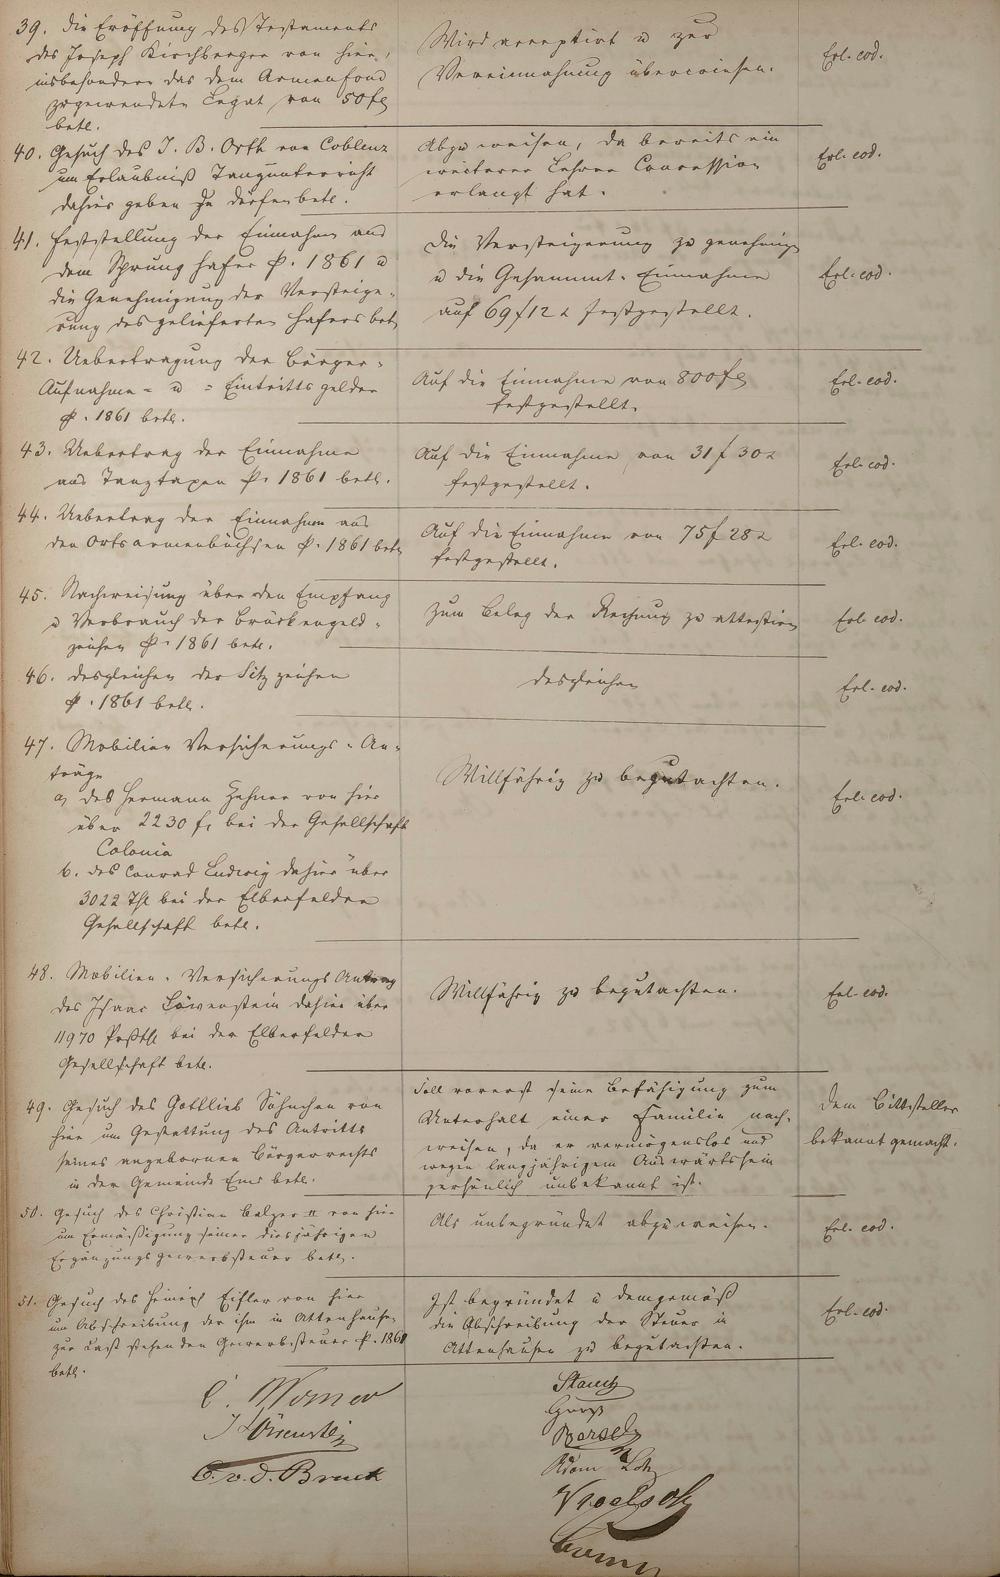 39. Die Eröffnung des Testaments
des Joseph Kirchberger von hier,
insbesondere das dem Armenfond
zugewendete Legat von 50 fl
betr.
Wird acceptirt u zur
Vereinnahmung überwiesen.
Erl. eod.
40. Gesuch des J. B. Orth von Coblenz
um Erlaubniß Tanzunterricht
dahier geben zu dürfen betr.
Abzuweisen, da bereits ein
weiterer Lehrer Concession
erlangt hat.
Erl. eod.
41. Feststellung der Einnahme aus
dem Sprunghafer p. 1861 u
die Genehmigung der Versteige-
rung des gelieferten Hafers betr.
Die Versteigerung zu genehmigen
u die Gesammt-Einnahme
auf 69 f 12 x festgestellt.
Erl. eod.
42. Uebertragung der Bürger-
Aufnahme- u - Eintrittsgelder
p. 1861 betr.
Auf die Einnahme von 800 fl
festgestellt.
Erl. eod.
43. Uebertrag der Einnahme
aus Tanztaxen p. 1861 betr.
Auf die Einnahme von 31 f 30 x
festgestellt.
Erl. eod.
44. Uebertrag der Einnahme aus
den Ortsarmenbüchsen p. 1861 betr.
Auf die Einnahme von 75 f 28 x
festgestellt.
Erl. eod.
45. Nachweisung über den Empfang
u Verbrauch der Brückengeld-
zeichen p. 1861 betr.
Zum Beleg der Rechnung zu attestiren
Erl. eod.
46. Desgleichen der Sitzzeichen
p. 1861 betr.
Desgleichen
Erl. eod.
47. Mobilien Versicherungs-An-
träge
a, des Hermann Zehner von hier
über 2230 fl bei der Gesellschaft
Colonia
b. des Conrad Ludwig dahier über
3022 Thl bei der Elberfelder
Gesellschaft betr.
Willfährig zu begutachten.
Erl. eod.
48. Mobilien-Versicherungs Antrag
des Isaac Löwenstein dahier über
11970 Prßthl bei der Elberfelder
Gesellschaft betr.
Willfährig zu begutachten.
Erl. eod.
49. Gesuch des Gottlieb Söhnchen von
hier um Gestattung des Antritts
seines angebornen Bürgerrechts
in der Gemeinde Ems betr.
Soll vorerst seine Befähigung zum
Unterhalt einer Familie nach-
weisen, da er vermögenslos und
wegen langjährigem Auswärtssein
persönlich unbekannt ist.
Dem Bittsteller
bekannt gemacht.
50. Gesuch des Christian Balzer II von hier
um Ermäßigung seiner diesjährigen
Ergänzungsgewerbsteuer betr.
Als unbegründet abzuweisen.
Erl. eod.
51. Gesuch des Heinrich Eifler von hier
um Abschreibung der ihm in Attenhausen
zur Last stehenden Gewerbsteuer p. 1861
betr.
Ist begründet u demgemäß
die Abschreibung der Steuer in
Attenhausen zu begutachten.
Erl. eod.
C. Werner
J Löwenstein
C. v. d. Bruck
Adam
Vogelsch